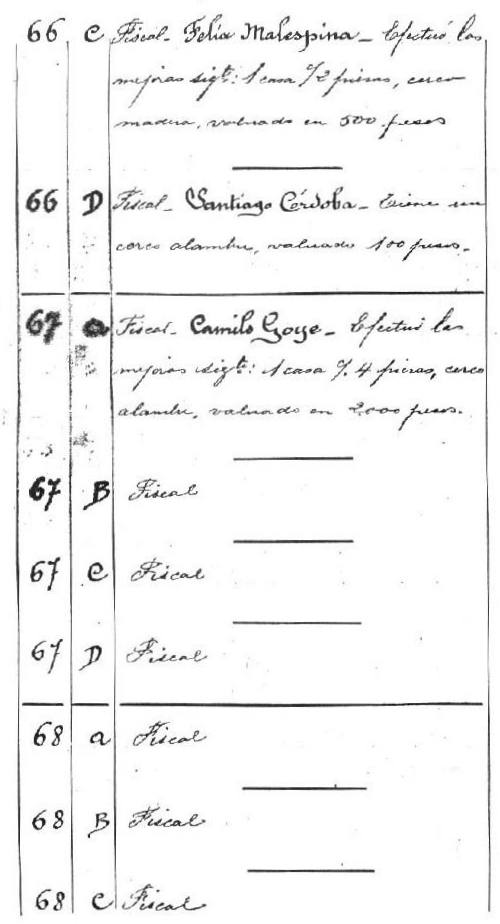 66 C Fiscal - Felix Malespina - Efectuó las
mejoras sigte: 1 casa c/2 piezas, cerco
madera, valuado en 500 pesos
66 D Fiscal - Santiago Córdoba - Tiene un
cerco alambre, valuado 100 pesos.
67 a Fiscal - Camilo Goye - Efectuó las
mejoras sigte: 1 casa c/. 4 piezas, cerco
alambre, valuado en 2.000 pesos.
67 B Fiscal
67 C Fiscal
67 D Fiscal
68 a Fiscal
68 B Fiscal
68 C Fiscal